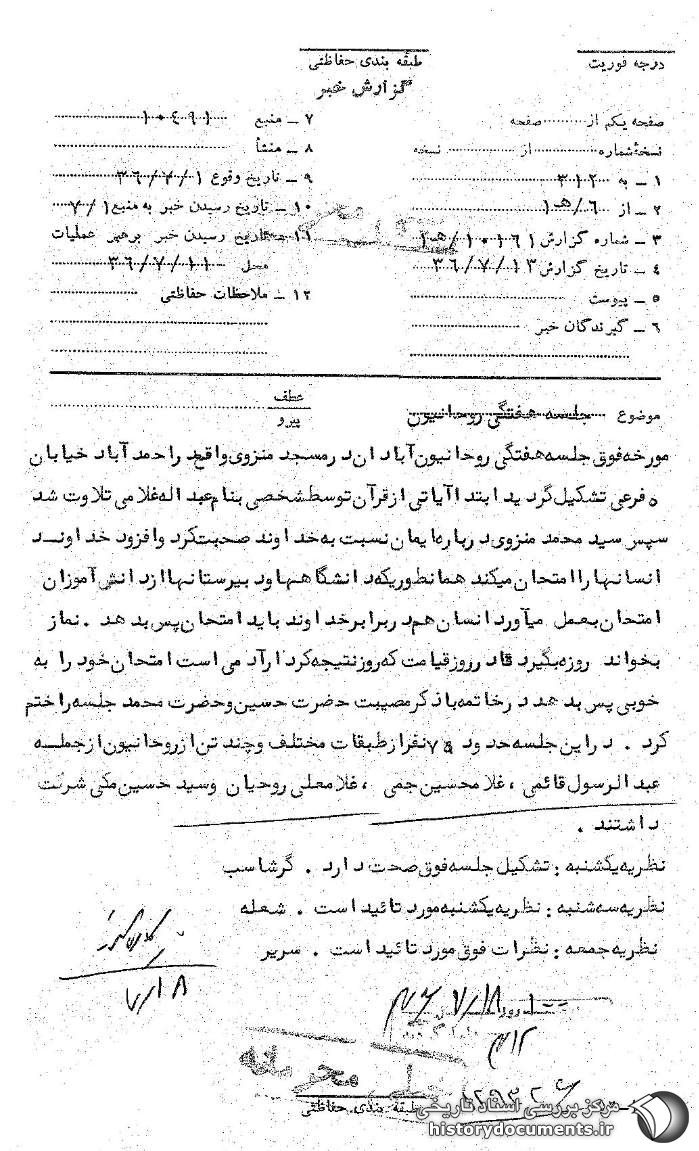 درجه فوریت
طبقه بندی حفاظتی
گزارش خبر
صفحه یکم از صفحه
نسخهٔ شماره از نسخه
۱ ـ به ۳۱۲
۲ ـ از ۶/هـ۱
۳ ـ شماره گزارش ۱۰۱۶۱/هـ۱
۴ ـ تاریخ گزارش ۳۶/۷/۱۳
۵ ـ پیوست
۶ ـ گیرندگان خبر
۷ ـ منبع ۱۰۴۹۱
۸ ـ منشأ
۹ ـ تاریخ وقوع ۳۶/۷/۱
۱۰ ـ تاریخ رسیدن خبر به منبع ۷/۱
۱۱ ـ تاریخ رسیدن خبر برهبر عملیات
محل ۳۶/۷/۱۱
۱۲ ـ ملاحظات حفاظتی
موضوع جلسه هفتگی روحانیون
عطف
پیرو
مورخه فوق جلسه هفتگی روحانیون آبادان در مسجد منزوی واقع در احمد آباد خیابان
ه فرعی تشکیل گردید ابتدا آیاتی از قرآن توسط شخصی بنام عبداله غلامی تلاوت شد
سپس سید محمد منزوی درباره ایمان نسبت به خداوند صحبت کرد و افزود خداوند
انسانها را امتحان میکند همانطوریکه دانشگاهها و دبیرستانها از دانش آموزان
امتحان بعمل میآورد انسان هم در برابر خداوند باید امتحان پس بدهد . نماز
بخواند روزه بگیرد تا در روز قیامت که روز نتیجه کردار آدمی است امتحان خود را به
خوبی پس بدهد در خاتمه با ذکر مصیبت حضرت حسین و حضرت محمد جلسه را ختم
کرد . در این جلسه حدود ۷۵ نفر از طبقات مختلف و چند تن از روحانیون از جمله
عبدالرسول قائمی ، غلامحسین جمی ، غلامعلی روحیان و سید حسین مکی شرکت
داشتند .
نظریه یکشنبه : تشکیل جلسه فوق صحت دارد . گرشاسب
نظریه سه شنبه : نظریه یکشنبه مورد تائید است . شعله
نظریه جمعه : نظرات فوق مورد تائید است . سریر
۷/۱۸
۷/۱۸
۳۱۲
خیلی محرمانه
طبقه بندی حفاظتی
مرکز بررسی اسناد تاریخی
historydocuments.ir